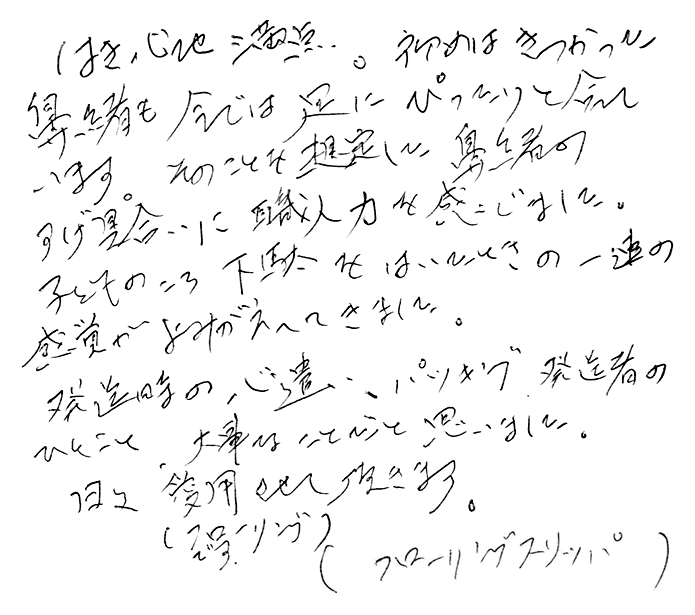 はき心地満点。初めはきつかった
鼻緒も今では足にぴったりと合って
います。そのことを想定した鼻緒の
すげ具合いに職人力を感じました。
子どものころ下駄をはいたときの一連の
感覚がよみがえってきました。
発送時の心遣い、パッキング 発送者の
ひとこと、大事なことだと思いました。
日々 愛用させて頂きます。
(フローリング)
です。
(フローリングスリッパ)